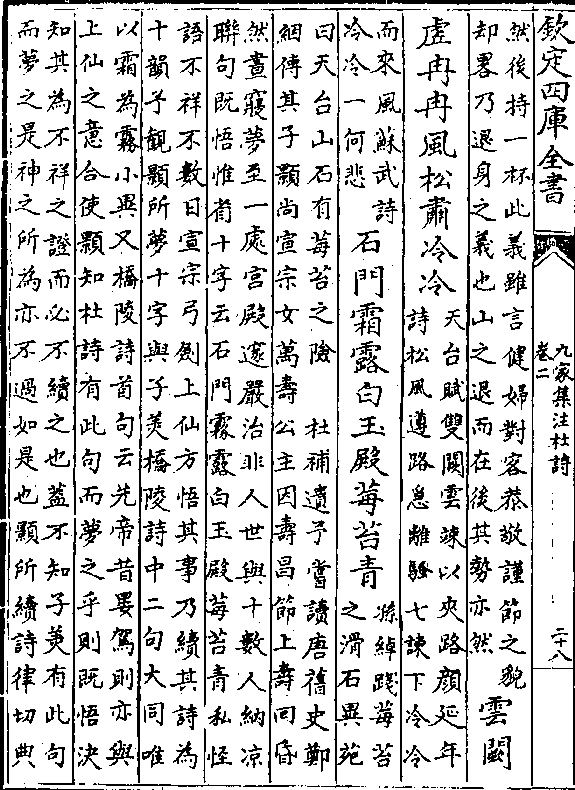 欽定四庫全書
九家集注杜詩
卷二
二十八
然後持一杯此義雖言健婦對客恭敬謹節之貌
却畧乃退身之義也山之退而在後其勢亦然
雲闕
虛冉冉風松肅冷冷
天台賦雙闕雲竦以夾路顔延年
詩松風遵路急離騷七諫下冷冷
而來風蘇武詩
冷冷一何悲
石門霜露白玉殿莓苔青
孫綽踐莓苔
之滑石異苑
曰天台山石有莓苔之險 杜補遺予嘗讀唐舊史鄭
絪傳其子顥尚宣宗女萬壽公主因壽昌節上壽囘昏
然晝寢夢至一處宮殿邃嚴治非人世與十數人納凉
聯句既悟惟省十字云石門霧露白玉殿莓苔青私怪
語不祥不數日宣宗弓劍上仙方悟其事乃續其詩為
十韻予觀顥所夢十字與子羙橋陵詩中二句大同唯
以霜為霧小異又橋陵詩首句云先帝昔晏駕則亦與
上仙之意合使顥知杜詩有此句而夢之乎則既悟決
知其為不祥之證而必不續之也葢不知子羙有此句
而夢之是神之所為亦不過如是也顥所續詩律切典